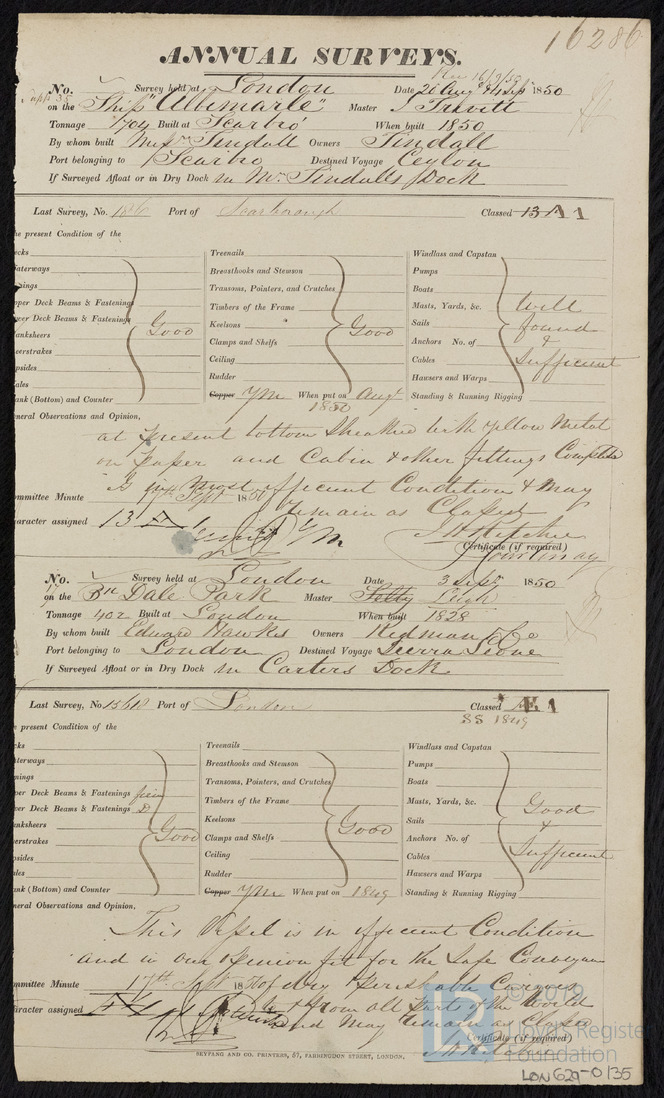 16286
ANNUAL SURVEYS.
Rec 16/9/50
No. Survey held at London Date 26 Aug & 4 Sept 1850
on the Ship "Albemarle" Master J Trivett
Tonnage 704 Built at Scarbro' When built 1850
By whom built Messrs Tindall Owners Tindall
Port belonging to Scarbro Destined Voyage Ceylon
If Surveyed Afloat or in Dry Dock in Mr. Tindalls Dock
Last Survey, No. Port of Scarborough Classed 13 A 1
he present Condition of the
ecks Treenails Windlass and Capstan
aterways Breasthooks and Stemson Pumps
nings Transoms, Pointers, and Crutches Boats
per Deck Beams & Fastenings Timbers of the Frame Masts, Yards, &c. Well
wer Deck Beams & Fastenings Good Keelsons Good Sails found
anksheers Clamps and Shelfs Anchors No. of &
eerstrakes Ceiling Cables Sufficient
psides Rudder Hawsers and Warps
ales Copper YM When put on Augt 1850 Standing & Running Rigging
ank (Bottom) and Counter
neral Observations and Opinion,
at present bottom Sheathed with yellow Metal
on paper and Cabin & other fittings Complete
Is in Most efficient Condition & May
ommittee Minute 17th Sept 1850 remain as Classed
aracter assigned 13 A 1
YM J H Ritchie
Certificate (if required)
Courtenay
No. Survey held at London Date 3 Sept 1850
on the Bk Dale Park Master Petty Leigh
Tonnage 402 Built at London When built 1828
By whom built Edward Hawkes Owners Redman & Co
Port belonging to London Destined Voyage Sierra Leone
If Surveyed Afloat or in Dry Dock in Carters Dock
Last Survey, No. 15618 Port of London Classed Æ 1
SS 1849
e present Condition of the
cks Treenails Windlass and Capstan
terways Breasthooks and Stemson Pumps
nings Transoms, Pointers, and Crutches Boats
per Deck Beams & Fastenings Timbers of the Frame Masts, Yards, &c. Good
wer Deck Beams & Fastenings Do Keelsons Good Sails &
nksheers Good Clamps and Shelfs Anchors No. of
erstrakes Ceiling Cables Sufficient
sides Rudder Hawsers and Warps
les Copper YM When put on 1849 Standing & Running Rigging
nk (Bottom) and Counter
neral Observations and Opinion,
This Vessel is in efficient Condition
and in our opinion fit for the Safe Conveyance
ommittee Minute 17th Sept 1850 of dry & Perishable Cargoes
aracter assigned to & from all parts of the World
and May remain as Classed
Certificate (if required)
J H Ritchie
SEYFANG AND CO. PRINTERS, 57, FARRINGDON STREET, LONDON,
© 2019
Lloyd's Register
Foundation
LON 629-0135